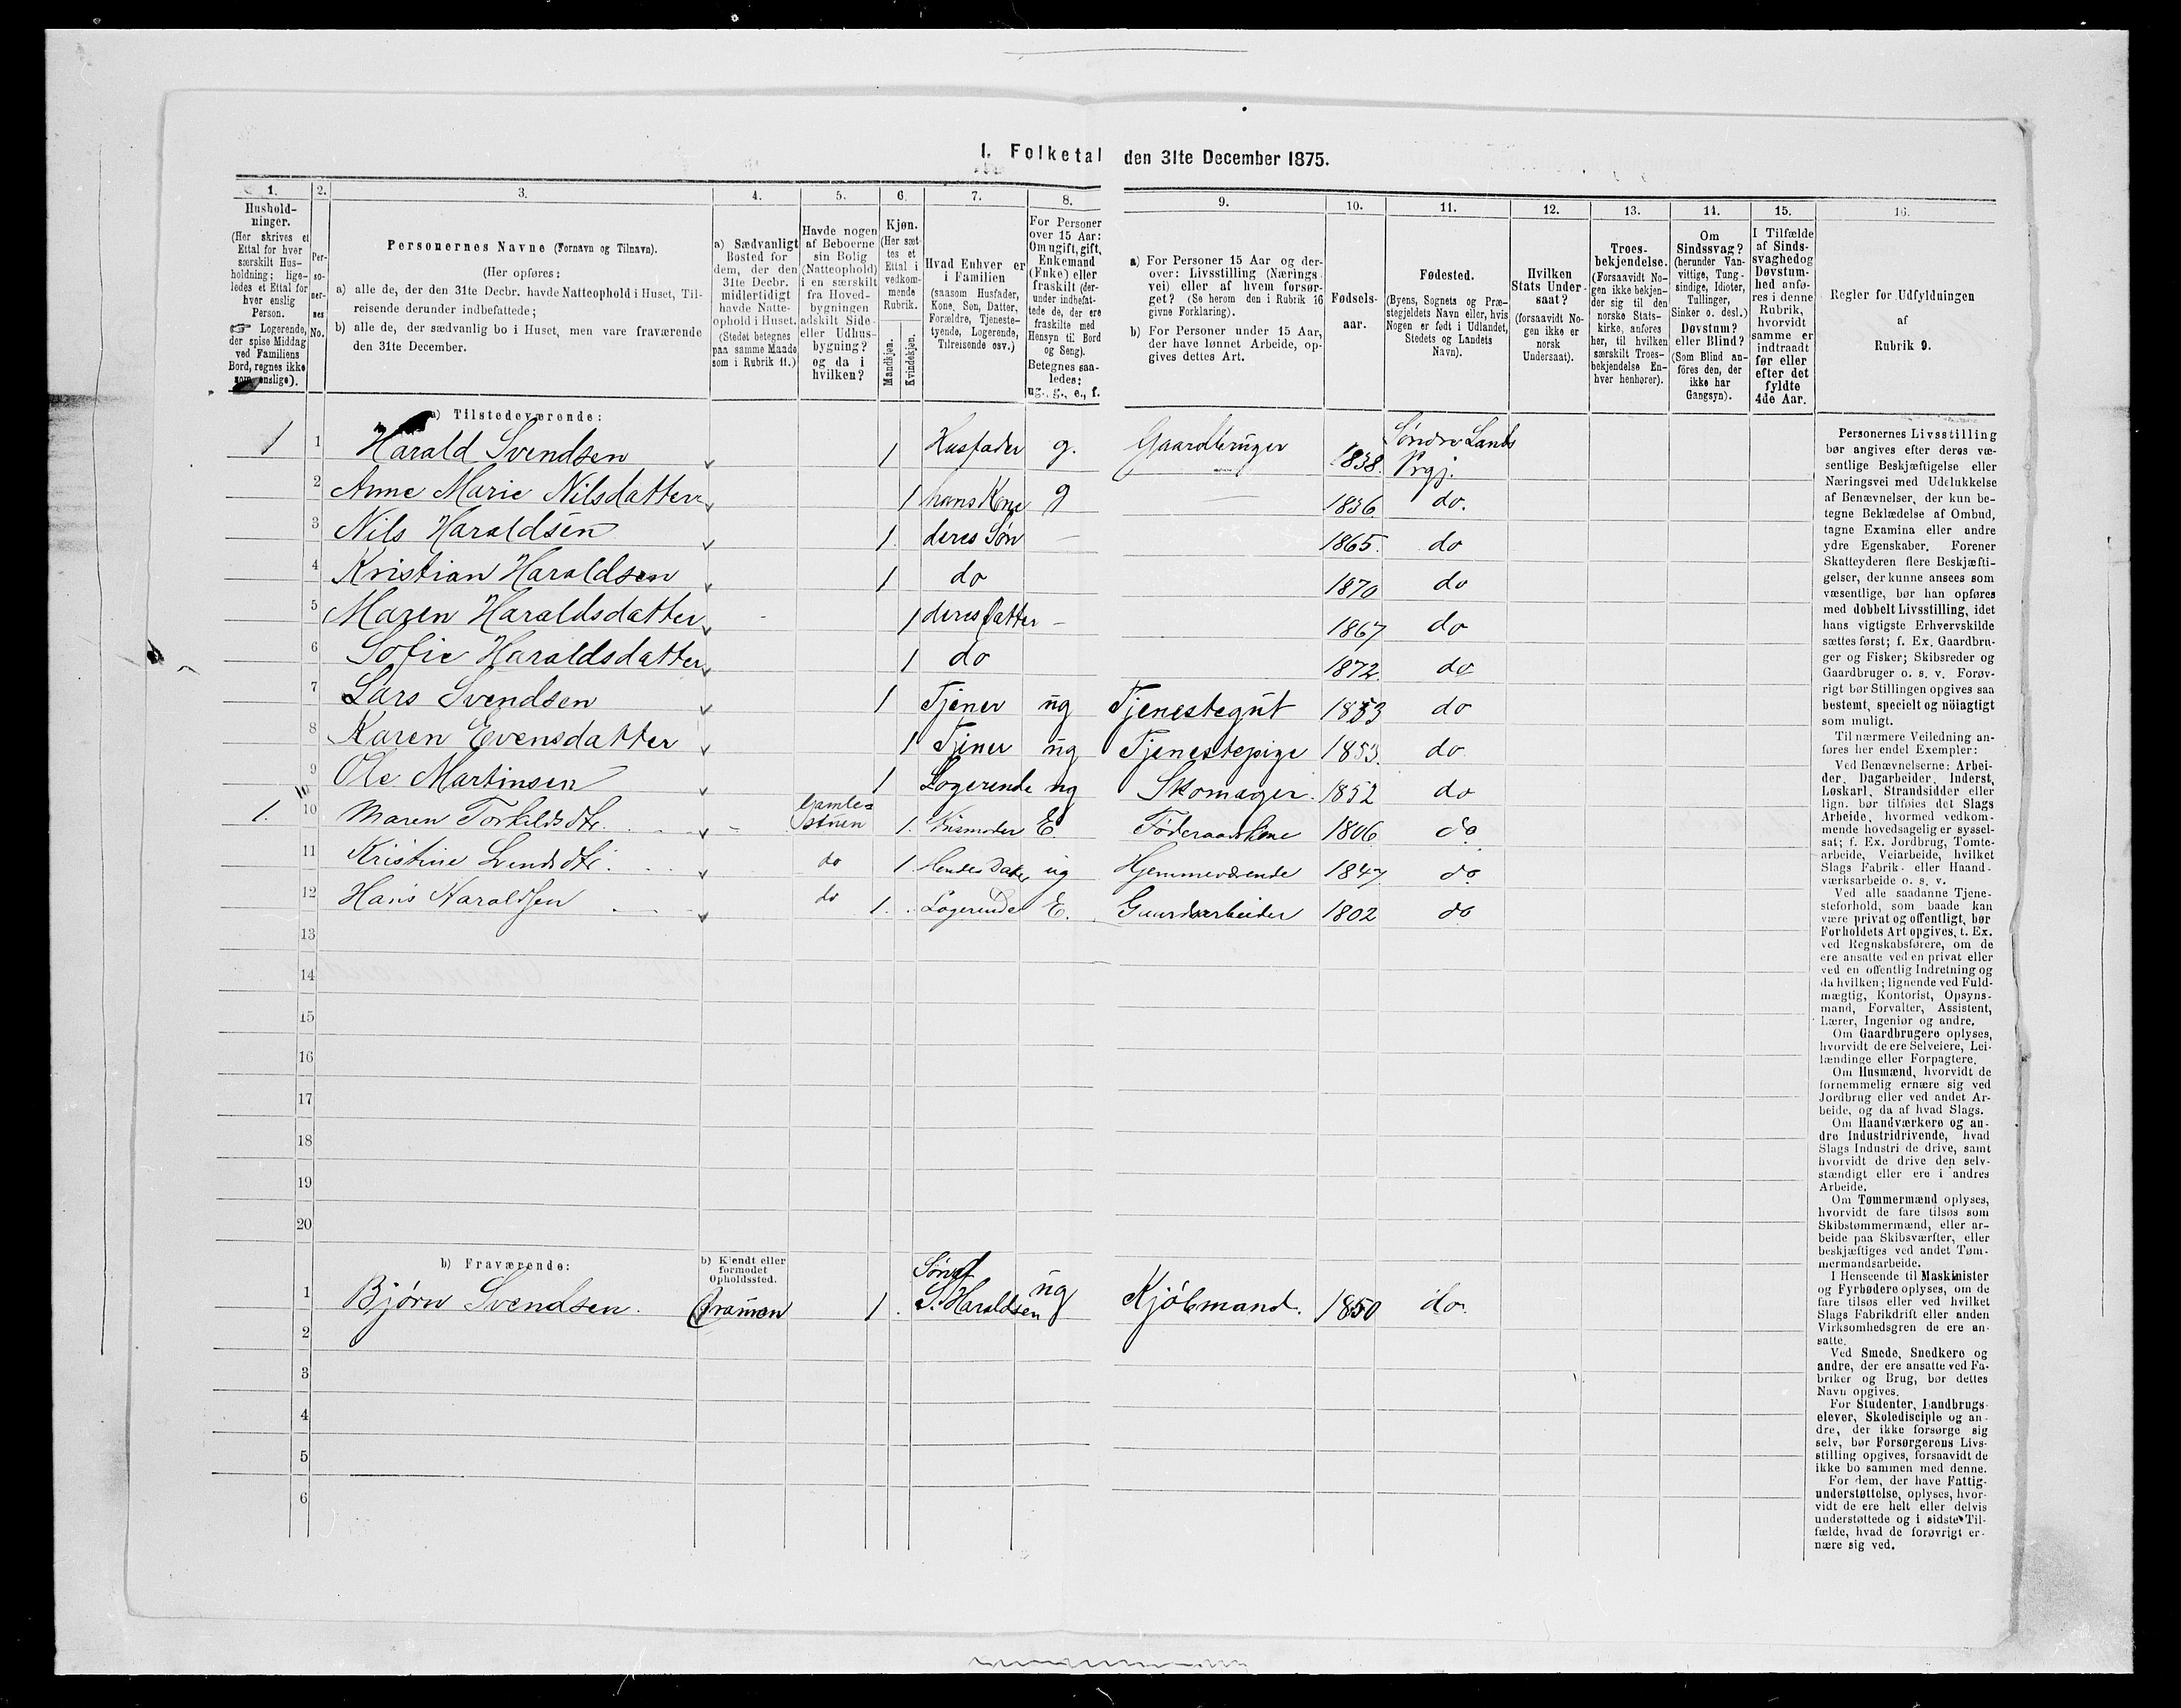 I. Folketal den 31te December 1875.
1. 2. 3. 4. 5. 6. 7. 8. 9. 10. 11. 12. 13. 14. 15. 16.
Husholdninger.
(Her skrives et
Ettal for hver
særskilt Hus-
holdning; lige-
ledes et Ettal for
hver enslig
Person.
☞ Logerende,
der spise Middag
ved Familiens
Bord, regnes ikke
som enslige).
Per-
so-
ner-
nes
No.
Personernes Navne (Fornavn og Tilnavn).
(Her opføres:
a) alle de, der den 31te Decbr. havde Natteophold i Huset, Til-
reisende derunder indbefattede;
b) alle de, der sædvanlig bo i Huset, men vare fraværende
den 31te December.
a) Sædvanligt
Bosted for
dem, der den
31te Decbr.
midlertidigt
havde Natte-
ophold i Huset.
(Stedet betegnes
paa samme Maade
som i Rubrik 11.)
Havde nogen
af Beboerne
sin Bolig
(Natteophold)
i en særskilt
fra Hoved-
bygningen
adskilt Side-
eller Udhus-
bygning?
og da i
hvilken?
Kjøn.
(Her sæt-
tes et
Ettal i
vedkom-
mende
Rubrik.
Mandkjøn.
Kvindekjøn.
Hvad Enhver er
i Familien
(saasom Husfader,
Kone, Søn, Datter,
Forældre, Tjeneste-
tyende, Logerende,
Tilreisende osv.)
For Personer
over 15 Aar:
Om ugift, gift,
Enkemand
(Enke) eller
fraskilt (der-
under indbefat-
tede de, der ere
fraskilte med
Hensyn til Bord
og Seng).
Betegnes saa-
ledes:
ug., g., e., f.
a) For Personer 15 Aar og der-
over: Livsstilling (Nærings-
vei) eller af hvem forsør-
get? (Se herom den i Rubrik 16
givne Forklaring).
b) For Personer under 15 Aar,
der have lønnet Arbeide, op-
gives dettes Art.
Fødsels-
aar.
Fødested.
(Byens, Sognets og Præ-
stegjeldets Navn eller, hvis
Nogen er født i Udlandet,
Stedets og Landets
Navn).
Hvilken
Stats Under-
saat?
(forsaavidt No-
gen ikke er
norsk
Undersaat).
Troes-
bekjendelse.
(Forsaavidt No-
gen ikke bekjen-
der sig til den
norske Stats-
kirke, anføres
her, til hvilken
særskilt Troes-
bekjendelse En-
hver henhører).
Om
Sindssvag?
(herunder Van-
vittige, Tung-
sindige, Idioter,
Tullinger,
Sinker o. desl.)
Døvstum?
eller Blind?
(Som Blind an-
føres den, der
ikke har
Gangsyn).
I Tilfælde
af Sinds-
svaghed og
Døvstum-
hed anfø-
res i denne
Rubrik,
hvorvidt
samme er
indtraadt
før eller
efter det
fyldte
4de Aar.
Regler for Udfyldningen
af
Rubrik 9.
a) Tilstedeværende:
1 1 Harald Svendsen 1 Husfader g. Gaardbruger 1838. Søndre Lands Prgj.
2 Anne Marie Nilsdatter 1 hans Kone g 1836. do.
3 Nils Haraldsen 1 deres Søn 1865. do
4 Kristian Haraldsen 1 do 1870 do
5 Maren Haraldsdatter 1 deres Datter 1867 do
6 Sofie Haraldsdatter 1 do 1872. do
7 Lars Svendsen 1 Tjener ug Tjenestegut 1853 do
8 Karen Evensdatter 1 Tjener ug Tjenestepige 1853. do
9 Ole Martinsen 1 Logerende ug Skomager. 1852 do
1. 10 Maren Torkildsdtr. Gamle=stuen 1. Husmoder E. Føderaadskone 1806 do.
11 Kristine Svendsdtr. do 1. Hendes Datter ug Hjemmeværende 1847 do.
12 Hans Haraldsen do 1. Logerende E. Gaardarbeider 1802 do
13
14
15
16
17
18
19
20
b) Fraværende:
b) Kjendt eller
formodet
Opholdssted.
1 Bjørn Svendsen. 1. Søn af S. Haraldsen ug Kjøbmand. 1850 do.
2
3
4
5
6
Personernes Livsstilling
bør angives efter deres væ-
sentlige Beskjæftigelse eller
Næringsvei med Udelukkelse
af Benævnelser, der kun be-
tegne Beklædelse af Ombud,
tagne Examina eller andre
ydre Egenskaber. Forener
Skatteyderen flere Beskjæfti-
gelser, der kunne ansees som
væsentlige, bør han opføres
med dobbelt Livsstilling, idet
hans vigtigste Erhvervskilde
sættes først; f. Ex. Gaardbru-
ger og Fisker; Skibsreder og
Gaardbruger o. s. v. Forøv-
rigt bør Stillingen opgives saa
bestemt, specielt og nöiagtigt
som muligt.
Til nærmere Veiledning an-
føres her endel Exempler:
Ved Benævnelserne: Arbei-
der, Dagarbeider, Inderst,
Løskarl, Strandsidder eller
lign. bør tilføies det Slags
Arbeide, hvormed vedkom-
mende hovedsagelig er syssel-
sat; f. Ex. Jordbrug, Tomte-
arbeide, Veiarbeide, hvilket
Slags Fabrik- eller Haand-
værksarbeide o. s. v.
Ved alle saadanne Tjene-
steforhold, som baade kan
være privat og offentligt, bør
Forholdets Art opgives, t. Ex.
ved Regnskabsførere, om de
ere ansatte ved en privat eller
ved en offentlig Indretning og
da hvilken; lignende ved Fuld-
mægtig, Kontorist, Opsyns-
mand, Forvalter, Assistent,
Lærer, Ingeniør og andre.
Om Gaardbrugere oplyses,
hvorvidt de ere Selveiere, Lei-
lændinge eller Forpagtere.
Om Husmænd, hvorvidt de
fornemmelig ernære sig ved
Jordbrug eller ved andet Ar-
beide, og da af hvad Slags.
Om Haandværkere og an-
dre Industridrivende, hvad
Slags Industri de drive, samt
hvorvidt de drive den selv-
stændigt eller ere i andres
Arbeide.
Om Tømmermænd oplyses,
hvorvidt de fare tilsøs som
Skibstømmermænd, eller ar-
beide paa Skibsværfter, eller
beskjæftiges ved andet Tøm-
mermandsarbeide.
I Henseende til Maskinister
og Fyrbødere oplyses, om de
fare tilsøs eller ved hvilket
Slags Fabrikdrift eller anden
Virksomhedsgren de ere an-
satte.
Ved Smede, Snedkere og
andre, der ere ansatte ved Fa-
briker og Brug, bør dettes
Navn opgives.
For Studenter, Landbrugs-
elever, Skoledisciple og an-
dre, der ikke forsørge sig
selv, bør Forsørgerens Livs-
stilling opgives, forsaavidt de
ikke bo sammen med denne.
For dem, der have Fattig-
understøttelse, oplyses, hvor-
vidt de ere helt eller delvis
understøttede og i sidste Til-
fælde, hvad de forøvrigt er-
nære sig ved.